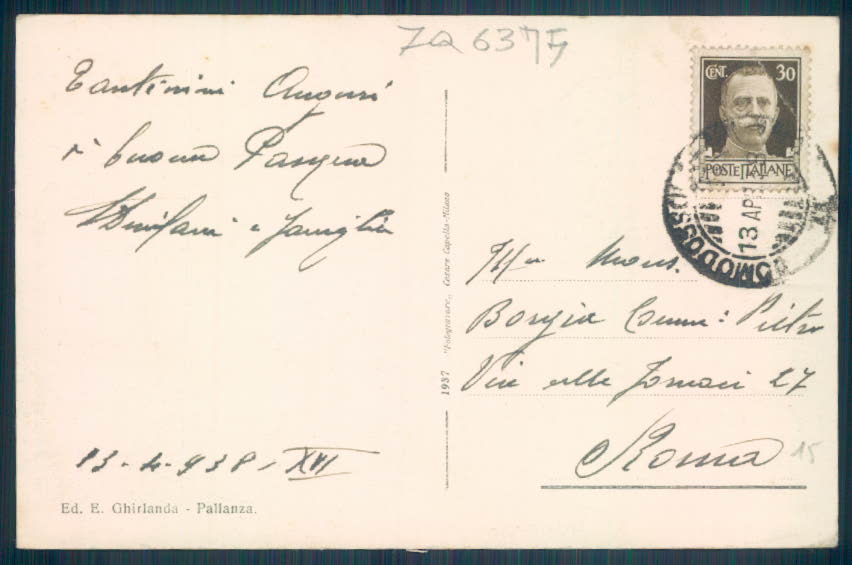 ZQ 6375
CENT. 30
POSTE ITALIANE
DOMODOSSOLA
13 AP
Tantissimi Auguri
di buona Pasqua
e famiglia
13-4-938-XVI
Ed. E. Ghirlanda - Pallanza.
1937 "Fotogravure" Cesare Capello-Milano
Ill/mo Mons.
Borgia Comm: Pietro
Via alle Fornaci 27
Roma
15